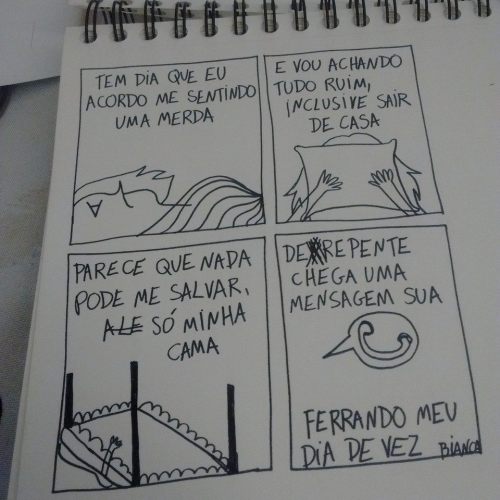 TEM DIA QUE EU
ACORDO ME SENTINDO
UMA MERDA
E VOU ACHANDO
TUDO RUIM,
INCLUSIVE SAIR
DE CASA
PARECE QUE NADA
PODE ME SALVAR,
ALE SÓ MINHA
CAMA
DE REPENTE
CHEGA UMA
MENSAGEM SUA
FERRANDO MEU
DIA DE VEZ
BIANCA